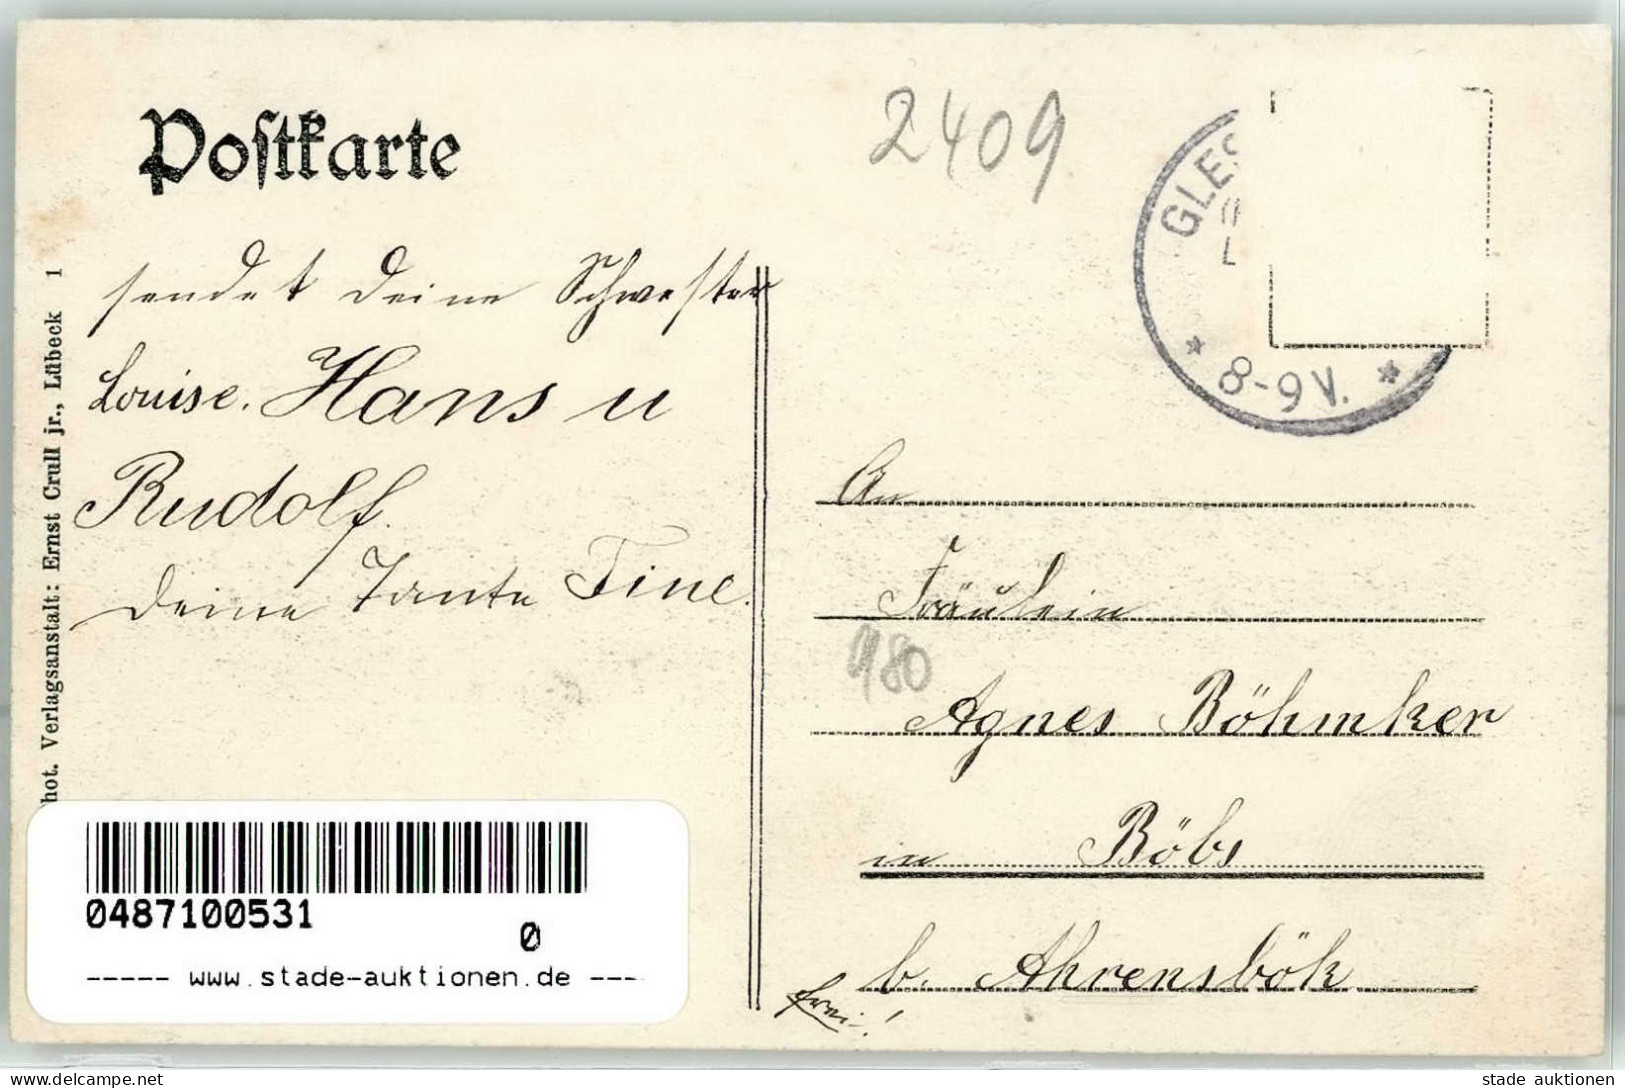 Postkarte
2409
GLES
8-9V.
sendet Deine Schwester
Louise. Hans u
Rudolf.
Deine Tante Tine.
An
Fräulein
980
Agnes Böhmker
in Böbs
b. Ahrensbök
frei!
hot. Verlagsanstalt: Ernst Crull jr., Lübeck 1
0487100531
0
----- www.stade-auktionen.de ----
www.delcampe.net
stade auktionen